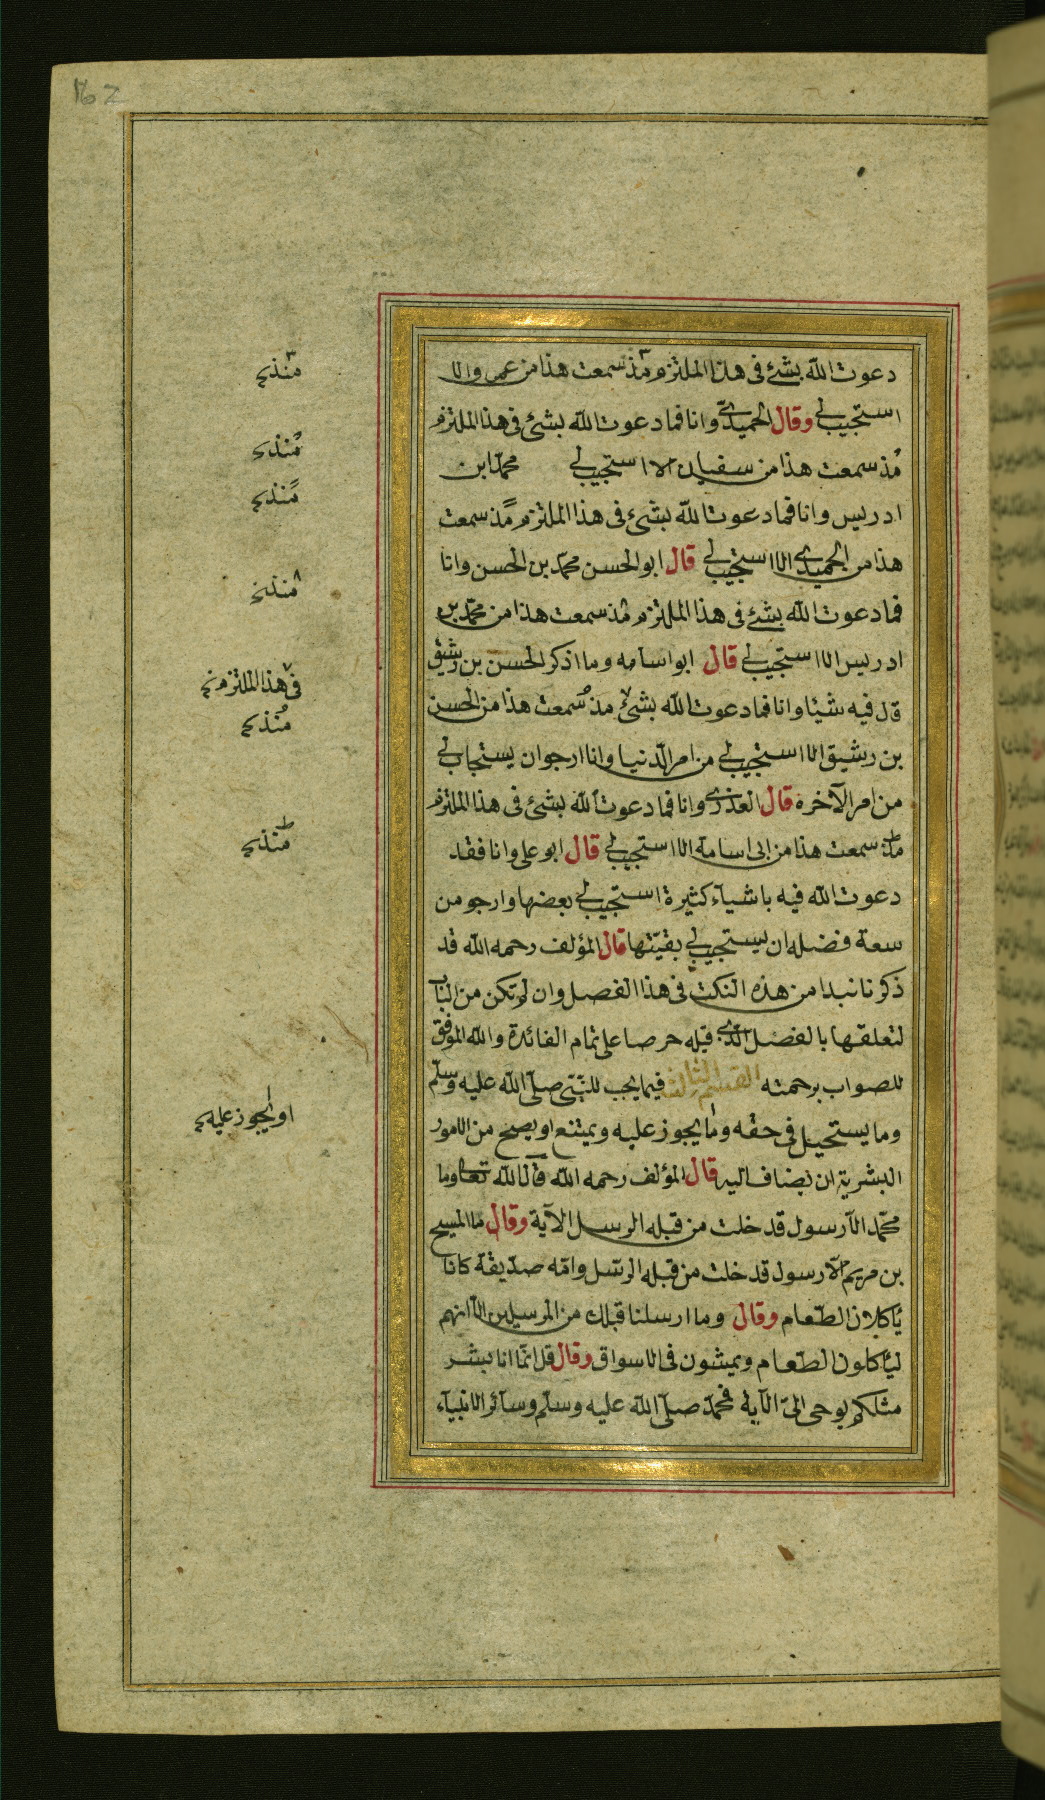 دعوت الله بشئ فى هذا الملتزم مذ سمعت هذا من عمرو الا
استجيب لى وقال الحميدى وانا فما دعوت الله بشئ فى هذا الملتزم
مذ سمعت هذا من سفيان الا استجيب لى محمد ابن
ادريس وانا فما دعوت الله بشئ فى هذا الملتزم مذ سمعت
هذا من الحميدى الا استجيب لى قال ابو الحسن محمد بن الحسن وانا
فما دعوت الله بشئ فى هذا الملتزم مذ سمعت هذا من محمد بن
ادريس الا استجيب لى قال ابو اسامه وما اذكر الحسن بن رشيق
قال فيه شيئا وانا فما دعوت الله بشئ مذ سمعت هذا من الحسن
بن رشيق الا استجيب لى من امر الدنيا وانا ارجو ان يستجاب لى
من امر الآخرة قال العذرى وانا فما دعوت الله بشئ فى هذا الملتزم
مذ سمعت هذا من ابى اسامة الا استجيب لى قال ابو على وانا فقد
دعوت الله فيه باشياء كثيرة استجيب لى بعضها وارجو من
سعة فضله ان يستجيب لى بقيتها قال المؤلف رحمه الله قد
ذكرنا نبدا من هذه النكت فى هذا الفصل وان لم تكن من الباب
لتعلقها بالفصل الذى قبله حرصا على تمام الفائدة والله الموفق
للصواب برحمته القسم الثالث فيما يجب للنبى صلى الله عليه وسلم
وما يستحيل فى حقه وما يجوز عليه ويمتنع او يصح من الامور
البشرية ان يضاف اليه قال المؤلف رحمه الله قال الله تعالى وما
محمد الا رسول قد خلت من قبله الرسل الآية وقال ما المسيح
بن مريم الا رسول قد خلت من قبله الرسل وامه صديقة كانا
يأكلان الطعام وقال وما ارسلنا قبلك من المرسلين الا انهم
ليأكلون الطعام ويمشون فى الاسواق وقال قل انما انا بشر
مثلكم يوحى الىّ الآية فمحمد صلى الله عليه وسلم وسائر الانبياء
منذ
منذ
منذ
منذ
فى هذا الملتزم
منذ
منذ
او يجوز عليه
162